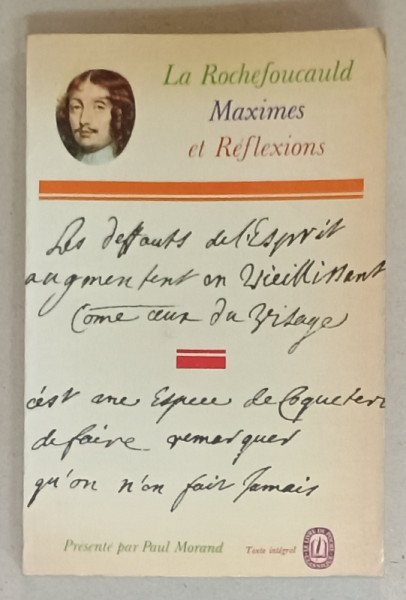 La Rochefoucauld
Maximes
et Réflexions
Les deffauts de l'Esprit
augmentent en Vieillissant
Come ceux du Visage
c'est une Espece de Coqueterie
de faire remarquer
qu'on n'en fait Jamais
Présenté par Paul Morand
Texte intégral
LE LIVRE DE POCHE
CLASSIQUE